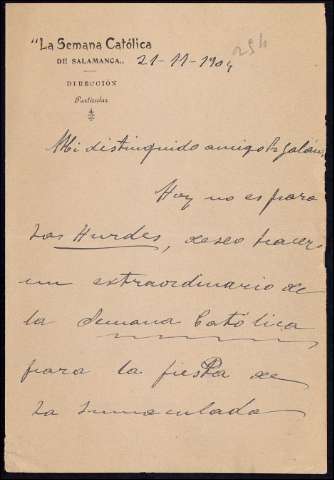 "La Semana Católica
DE SALAMANCA„
DIRECCIÓN
Particular
21-11-1904
254
Mi distinguido amigo Sr Galán:
Hoy no es para
Las Hurdes, deseo hacer
un extraordinario de
la Semana Católica
para la fiesta de
La Inmaculada